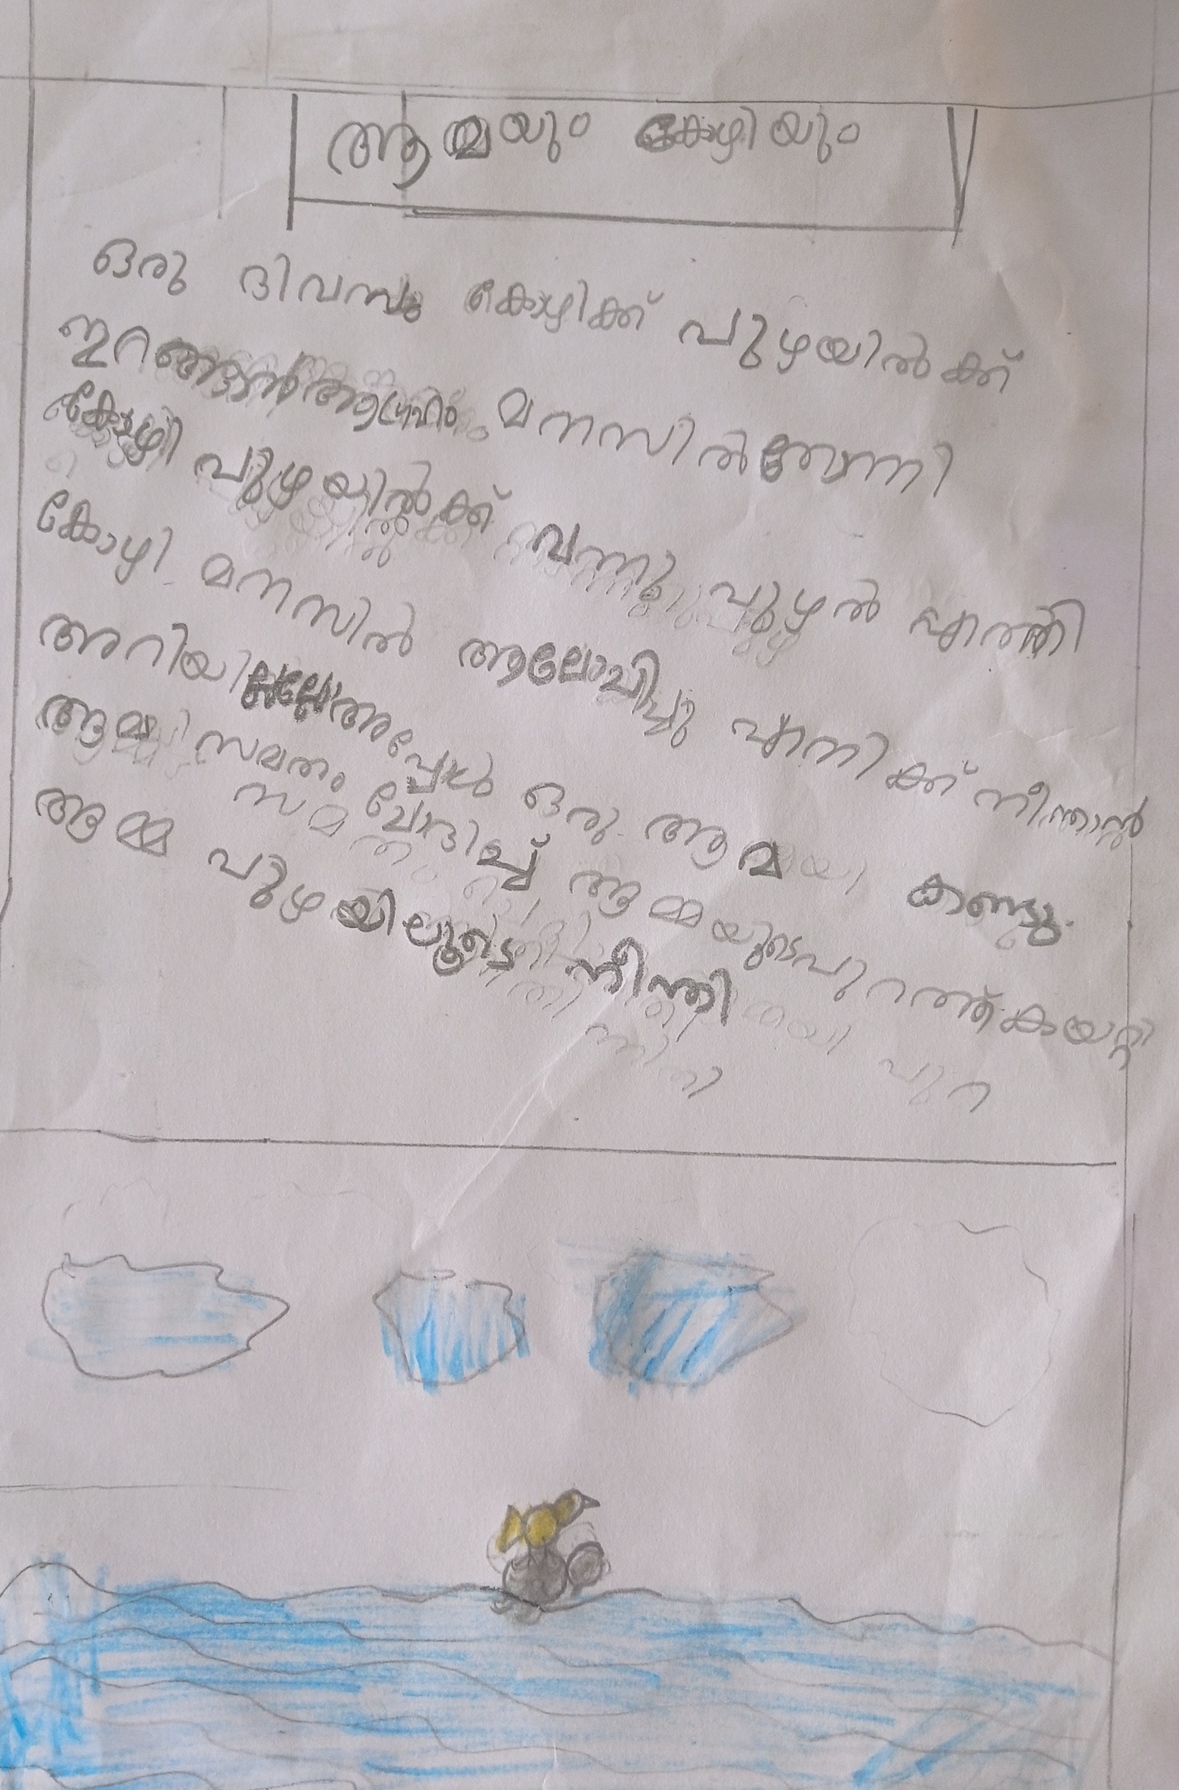 ആമ്മയും കോഴിയും
ഒരു ദിവസം കോഴിക്ക് പുഴയിൽക്ക്
ഇറങ്ങാൻആഗ്രഹം മനസിൽതോന്നി
കോഴി പുഴയിൽക്ക് വന്നു പുഴൽ എത്തി
കോഴി മനസിൽ ആലോചിച്ചു എനിക്ക് നീന്താൻ
അറിയില്ലല്ലോഅപ്പോൾ ഒരു ആമ കണ്ടു.
ആമ്മ സമതം ചോദിച്ച് ആമ്മയുടെപുറത്ത്കയറ്റി
ആമ്മ പുഴയിലൂടെ നീന്തി